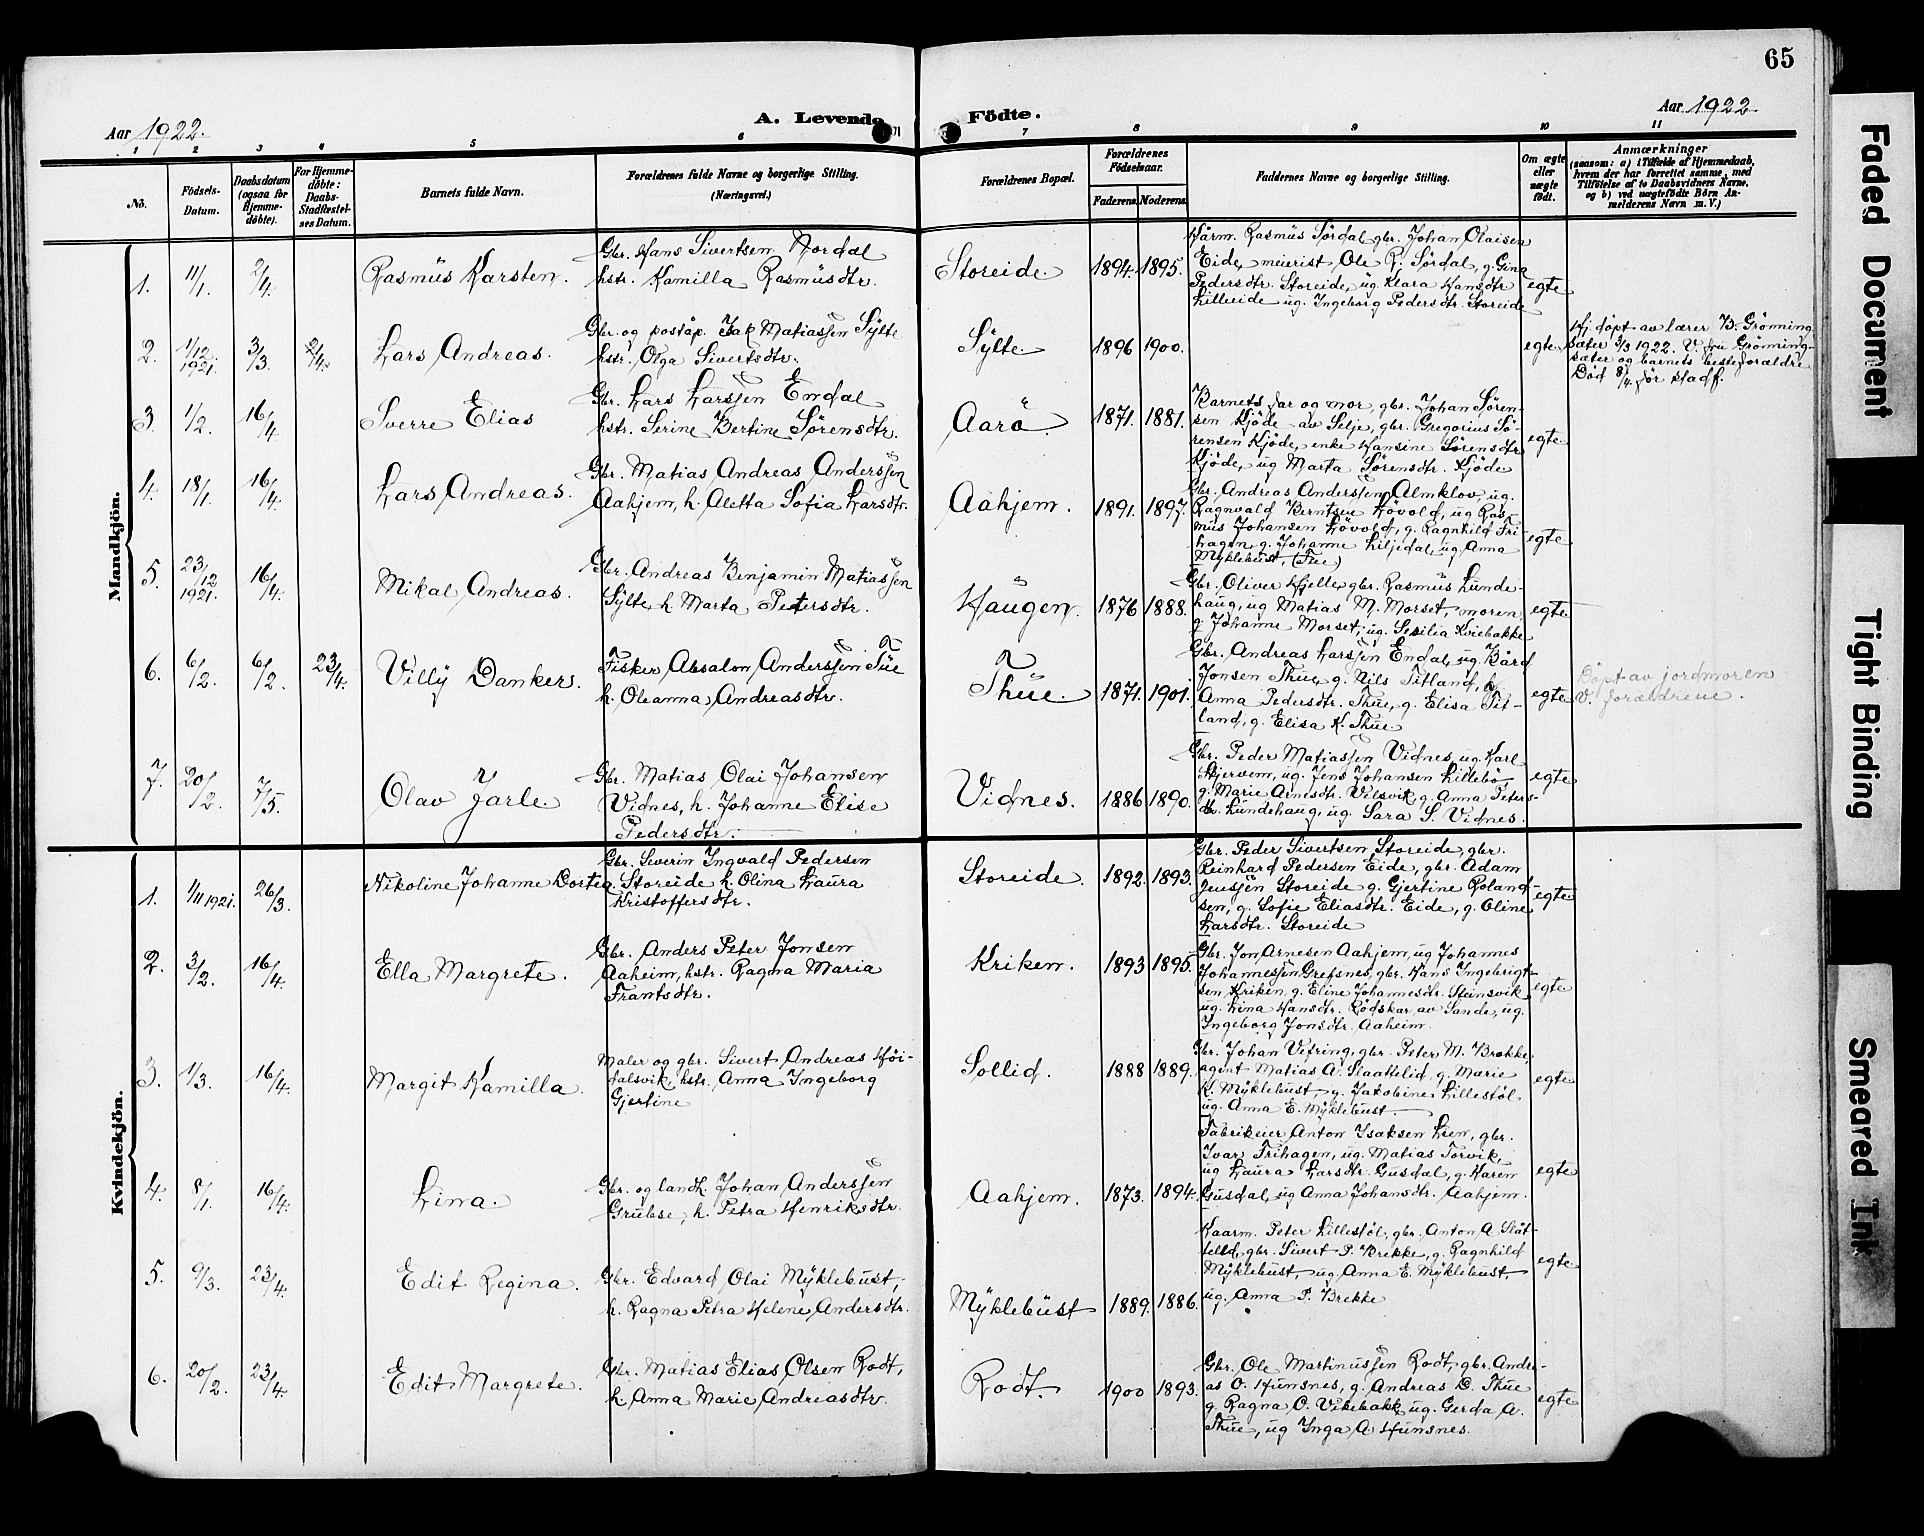 65
Aar 1922.
A. Levende
Födte.
Aar 1922
1 2 3 4 5 6 7 8 9 10 11
No.
Födsels-
Datum.
Daabsdatum
(ogsaa for
Hjemme-
döbte).
For Hjemme-
döbte:
Daabs-
Stadfæstel-
ses Datum.
Barnets fulde Navn.
Forældrenes fulde Navne og borgerlige Stilling.
(Næringsvei.)
Forældrenes Bopæl.
Forældrenes
Födselsaar.
Faderens.
Moderens.
Faddernes Navne og borgerlige Stilling.
Om ægte
eller
uægte
födt.
Anmærkninger
(saasom: a) i Tilfælde af Hjemmedaab,
hvem der har forrettet samme, med
Tilföielse af to Daabsvidners Navne,
og b) ved uægtefödte Börn An-
melderens Navn m. V.)
Mandkjön.
1.
11/1.
2/4.
Rasmus Karsten.
Gbr. Hans Sivertsen Nordal
hstr. Kamilla Rasmusdtr.
Storeide.
1894.
1895.
Kårm. Rasmus Sördal, gbr. Johan Olaisen
Eide, meierist Ole R. Sördal, g. Gina
Pedersdtr. Storeide, ug. Klara Hansdtr
Lilleeide ug. Ingeborg Pedersdtr. Storeide
egte
2.
1/12.
1921.
3/3.
2/4.
Lars Andreas.
Gbr. og poståp. Jak Matiassen Sylte
hstr. Olga Sivertsdtr.
Sylte.
1896
1900.
egte
Hj. döpt av lærer B. Grönning-
sæter 3/3 1922. V. fru Grönning-
sæter og barnets besteforældre
Död 8/4. för stadf.
3.
1/2.
16/4.
Sverre Elias
Gbr. Lars Larssen Endal
hstr. Serine Bertine Sörensdtr.
Aarö.
1871.
1881.
Barnets far og mor, gbr. Johan Sören-
sen Kjöde av Selje, gbr. Gregorius Sö-
rensen Kjöde, enke Hansine Sörensdtr
Kjöde, ug Marta Sörensdtr. Kjöde
egte
4.
18/1.
16/4.
Lars Andreas.
Gbr. Matias Andreas Anderssen
Aahjem, h. Aletta Sofia Larsdtr.
Aahjem.
1891.
1897.
Gbr. Andreas Anderssen Almklov, ug.
Ragnvald Berntsen Lövold, ug Ras-
mus Johansen Lövold, g. Ragnhild Fri-
hagen, g. Johanne Liljedal, ug Anna
Myklebust, (Tue)
egte
5.
23/12
1921.
16/4.
Mikal Andreas.
Gbr. Andreas Benjamin Matiassen
Sylte, h. Marta Petersdtr.
Haugen.
1876
1888.
Gbr. Oliver Hjelle, gbr. Rasmus Lunde-
haug, ug Matias M. Morset, moren
g. Johanne Morset, ug. Sesilia Kviebakke
egte
6.
6/2.
6/2.
23/4.
Villy Dankers.
Fisker Absalon Anderssen Tue
h. Oleanna Andreasdtr.
Thue.
1871.
1901.
Gbr. Andreas Larssen Endal, ug. Bård
Jonsen Thue, g. Nils Titland,
Anna Pedersdtr. Thue, g. Elisa Tit-
land, g. Elisa K. Thue
egte
Döpt av jordmoren
V. forældrene.
7.
20/2.
7/5.
Olav Jarle.
Gbr. Matias Olai Johansen
Vidnes, h. Johanne Elise
Pedersdtr.
Vidnes.
1886
1890.
Gbr. Peder Matiassen Vidnes, ug. Karl
Skjervem, ug. Jens Johansen Lillebö
g. Marie Arnesdtr. Velsvik, g. Anna Peters-
dtr. Lundehaug, ug. Sara S. Vidnes.
egte
Kvindekjön.
1.
1/11 1921.
26/3.
Nikoline Johanne Dortea.
Gbr. Severin Ingvald Pedersen
Storeide h. Olina Laura
Kristoffersdtr.
Storeide.
1892.
1893.
Gbr. Peder Sivertsen Storeide, gbr.
Reinhard Pedersen Eide, gbr. Adam
Jenssen Storeide g. Gjertine Roland-
sen, g. Sofie Eliasdtr. Eide, g. Oline
Larsdtr. Storeide
egte
2.
3/2.
16/4.
Ella Margrete.
Gbr. Anders Peter Jonsen
Aaheim, hstr. Ragna Maria
Frantsdtr.
Kriken.
1893
1895.
Gbr. Jon Arnesen Aahjem, ug Johannes
Johannessen Grefsnes, gbr. Hans Ingebrigt-
sen Kriken, g. Eline Johannesdtr. Steinsvik
ug. Lina Hansdtr. Rödskar av Sande, ug.
Ingeborg Jonsdtr. Aaheim.
egte
3.
1/3.
16/4.
Margit Kamilla.
Maler og gbr. Sivert Andreas Höi-
dalsvik, hstr. Anna Ingeborg
Gjertine
Sollid.
1888
1889.
Gbr. Johan Vefring, gbr. Peter M. Brekke,
agent Matias A. Slaattelid, g. Marie
K. Myklebust, g. Jakobine Lillestöl
ug. Anna E. Myklebust.
egte
4.
8/1.
16/4.
Lina.
Gbr. og landh. Johan Anderssen
Grubse, h. Petra Henriksdtr.
Aahjem.
1873.
1894.
Fabrikeier Anton Isaksen Lien, gbr.
Ivar Frihagen, ug. Matias Torvik,
ug Laura Larsdtr. Gusdal, g. Karen
Gusdal, ug Anna Johansdtr. Aahjem.
egte
5.
9/3.
23/4.
Edit Regina.
Gbr. Edvard Olai Myklebust,
h. Ragna Petra Helene Andersdtr.
Myklebust
1889.
1886.
Kaarm. Peter Lillestöl, gbr. Anton A. Slåt-
telid, gbr. Sivert P. Brekke, g. Ragnhild
Myklebust, ug. Anna E. Myklebust,
ug. Anna P. Brekke
egte
6.
20/2.
23/4.
Edit Margrete.
Gbr. Matias Elias Olsen Rodt,
h Anna Marie Andreasdtr.
Rodt.
1900
1893.
Gbr. Ole Martinussen Rodt, gbr. Andre-
as O. Hunsnes, g. Andreas D. Thue
g. Ragna O. Vikebakk, ug. Gerda A.
Thue, ug Inga A. Hunsnes.
egte
Faded Document
Tight Binding
Smeared Ink